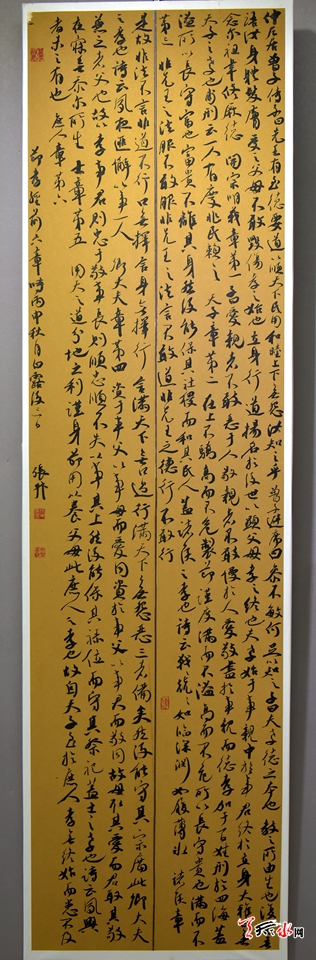 仲尼居曾子侍子曰先王有至德要道以順天下民用和睦上下無怨汝知之乎曾子避席曰參不敏何足以知之子曰夫孝德之本也教之所由生也復坐吾
語汝身體髮膚受之父母不敢毀傷孝之始也立身行道揚名於後世以顯父母孝之終也夫孝始于事親中於事君終於立身大雅云無
念爾祖聿修厥德 開宗明義章第一 子曰愛親者不敢惡于人敬親者不敢慢於人愛敬盡於事親而德教加于百姓刑於四海蓋
天子之孝也甫刑云一人有慶兆民賴之 天子章第二 在上不驕高而不危製節謹度滿而不溢高而不危所以長守貴也滿而不
溢所以長守富也富貴不離其身然後能保其社稷而和其民人蓋諸侯之孝也詩云戰戰兢兢如臨深淵如履薄冰 諸侯章
第三 非先王之法服不敢服非先王之法言不敢道非先王之德行不敢行
是故非法不言非道不行口無擇言身無擇行言滿天下無口過行滿天下無怨惡三者備矣然後能守其宗廟此卿大夫
之孝也詩云夙夜匪懈以事一人 卿大夫章第四 資于事父以事母而愛同資於事父以事君而敬同故母取其愛而君取其敬
兼之者父也故以孝事君則忠以敬事長則順忠順不失以事其上然後能保其祿位而守其祭祀蓋士之孝也詩云夙興
夜寐無忝爾所生 士章第五 用天之道分地之利謹身節用以養父母此庶人之孝也故自天子至於庶人孝無終始而患不及
者未之有也 庶人章第六
節孝經前六章時丙申秋月白露後三日 張
天水网